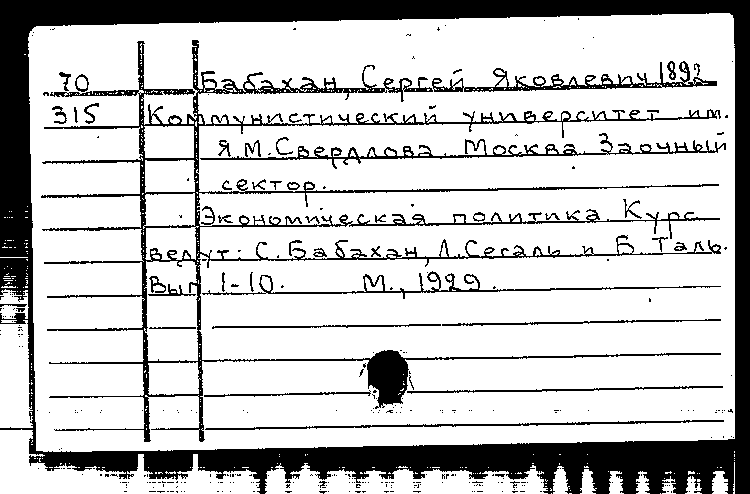 70 Бабахан, Сергей Яковлевич 1892
315 Коммунистический университет им.
Я.М.Свердлова. Москва. Заочный
сектор.
Экономическая политика. Курс
ведут: С. Бабахан, Л.Сегаль и Б. Таль.
Вып. 1-10. М., 1929.